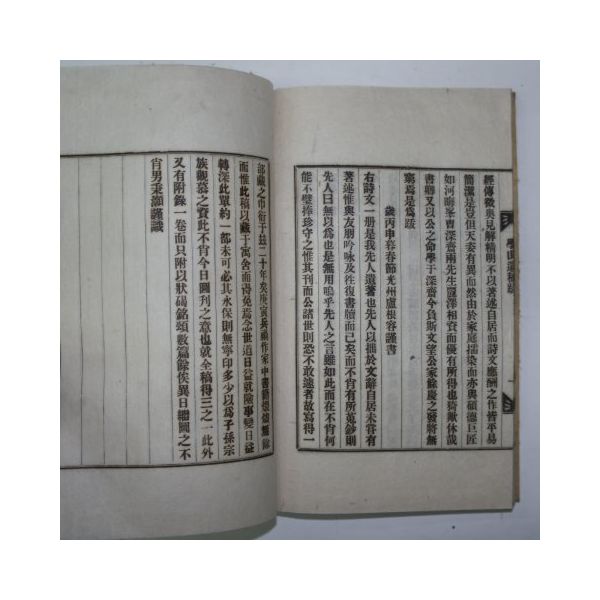 經傳微奧見解精明不以著述自居而詩文應酬之作皆平易
簡潔是豈但天委有異而然由於家庭擂染而亦與碩德巨匠
如河晦峯曺深齋兩生麗澤相資而優有所得也猗歟休哉
書賜又以公之命學于深齋令負斯文望公家餘慶之發將無
窮焉是爲跋
歲丙申暮春節光州盧根容謹書
右詩文一册是我先人遺著也先人以拙於文辭自居未嘗有
著述惟與友朋吟咏及往復書牘而已矣而不肖有所蒐鈔則
先人曰無以爲也是無用嗚乎先人之言雖如此而在不肖何
能不璧捧珍守之惟其刊而公諸世則恐不敢遠者故寫得一
部藏之巾衍于玆二十年矣庚寅兵禍作家中書籍煨燼無餘
而惟此稿以藏于寓舍而得免焉念世道日益就險事變日益
轉深此單約一部未可必其永保則無寧印多少以爲子孫宗
族觀慕之資此不肖今日圖刊之意也就全稿得三之一此外
又有附錄一卷而只附以狀碣銘頌數篇餘俟異日繼圖之不
肖男秉灝謹識